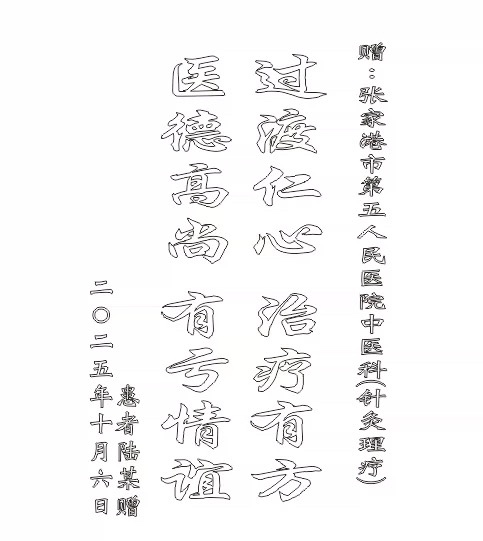 赠：张家港市第五人民医院中医科(针灸理疗)
过渡仁心 治疗有方
医德高尚 有亏情谊
患者陆某赠
二〇二五年十月六日